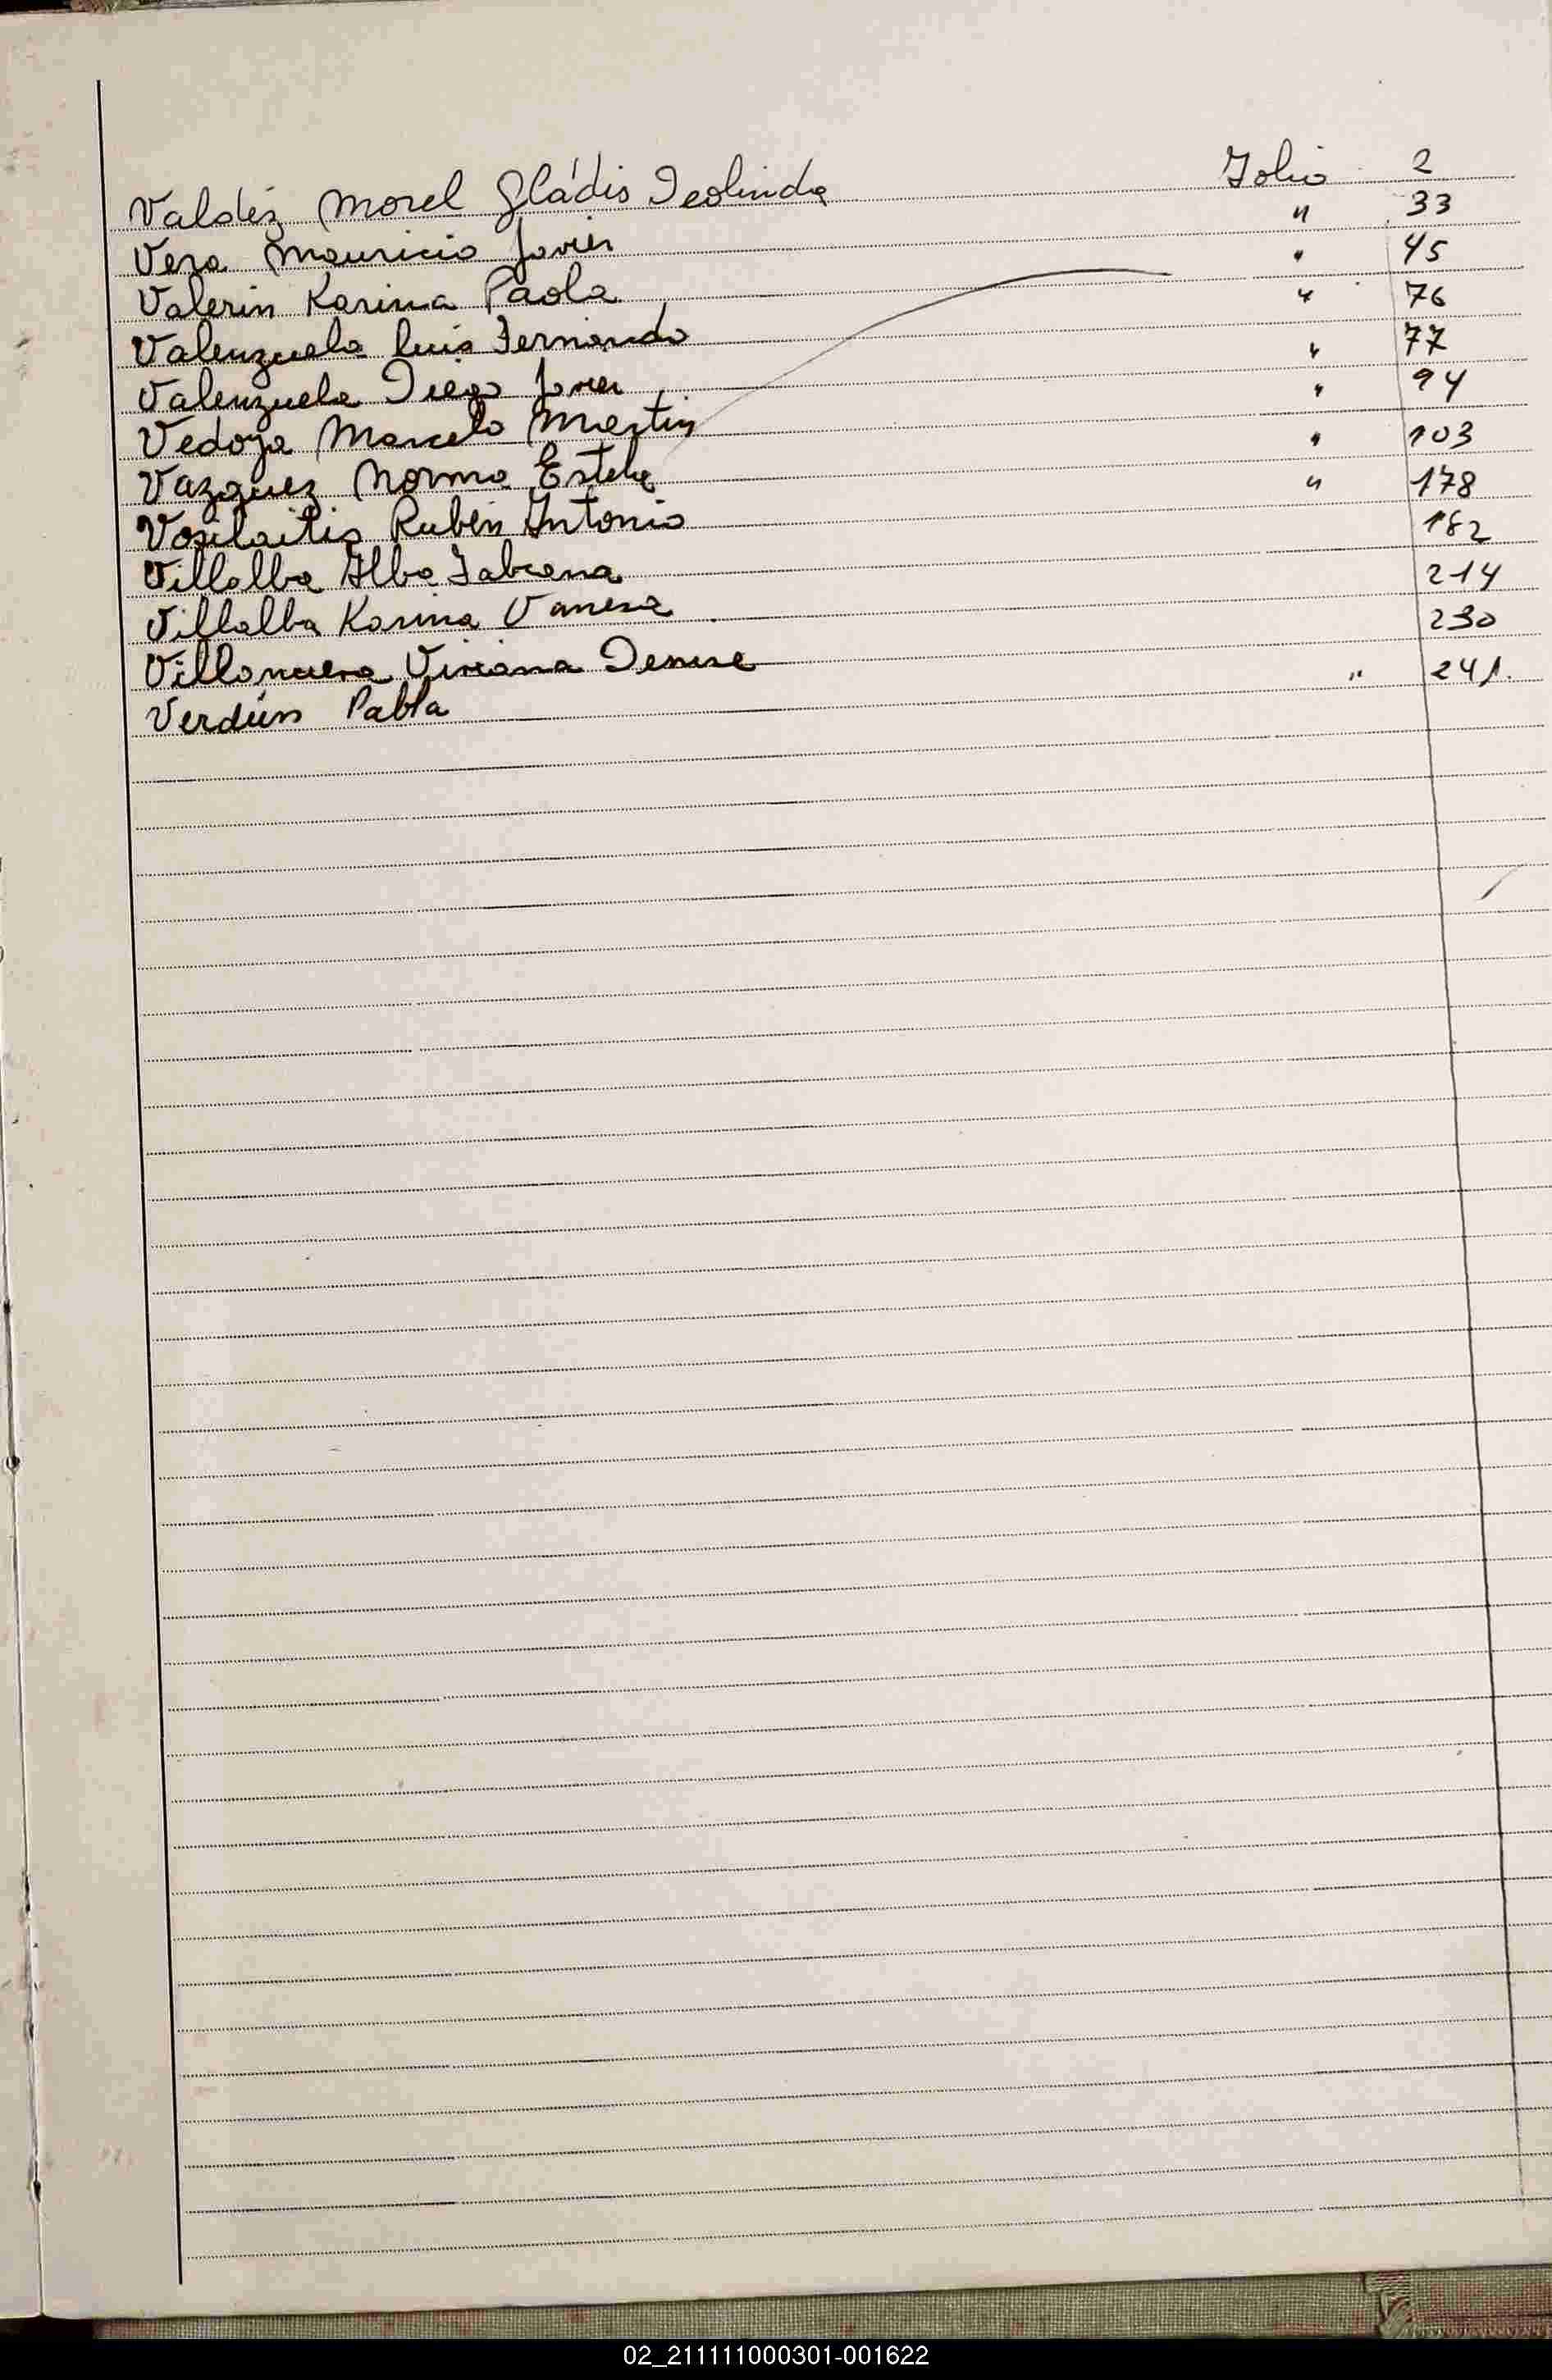 Valdéz Morel Gládis Teolinda Folio 2
Vera Mauricio Javier " 33
Valerin Karina Paola " 45
Valenzuela Luis Fernando " 76
Valenzuela Diego Javier " 77
Vedoya Marcelo Martin " 94
Vazquez Norma Estela " 103
Vosilaitis Rubén Antonio " 178
Villalba Alba Fabiana 182
Villalba Karina Vanesa 214
Villanueva Viviana Denise 230
Verdún Pabla " 241.
02_211111000301-001622